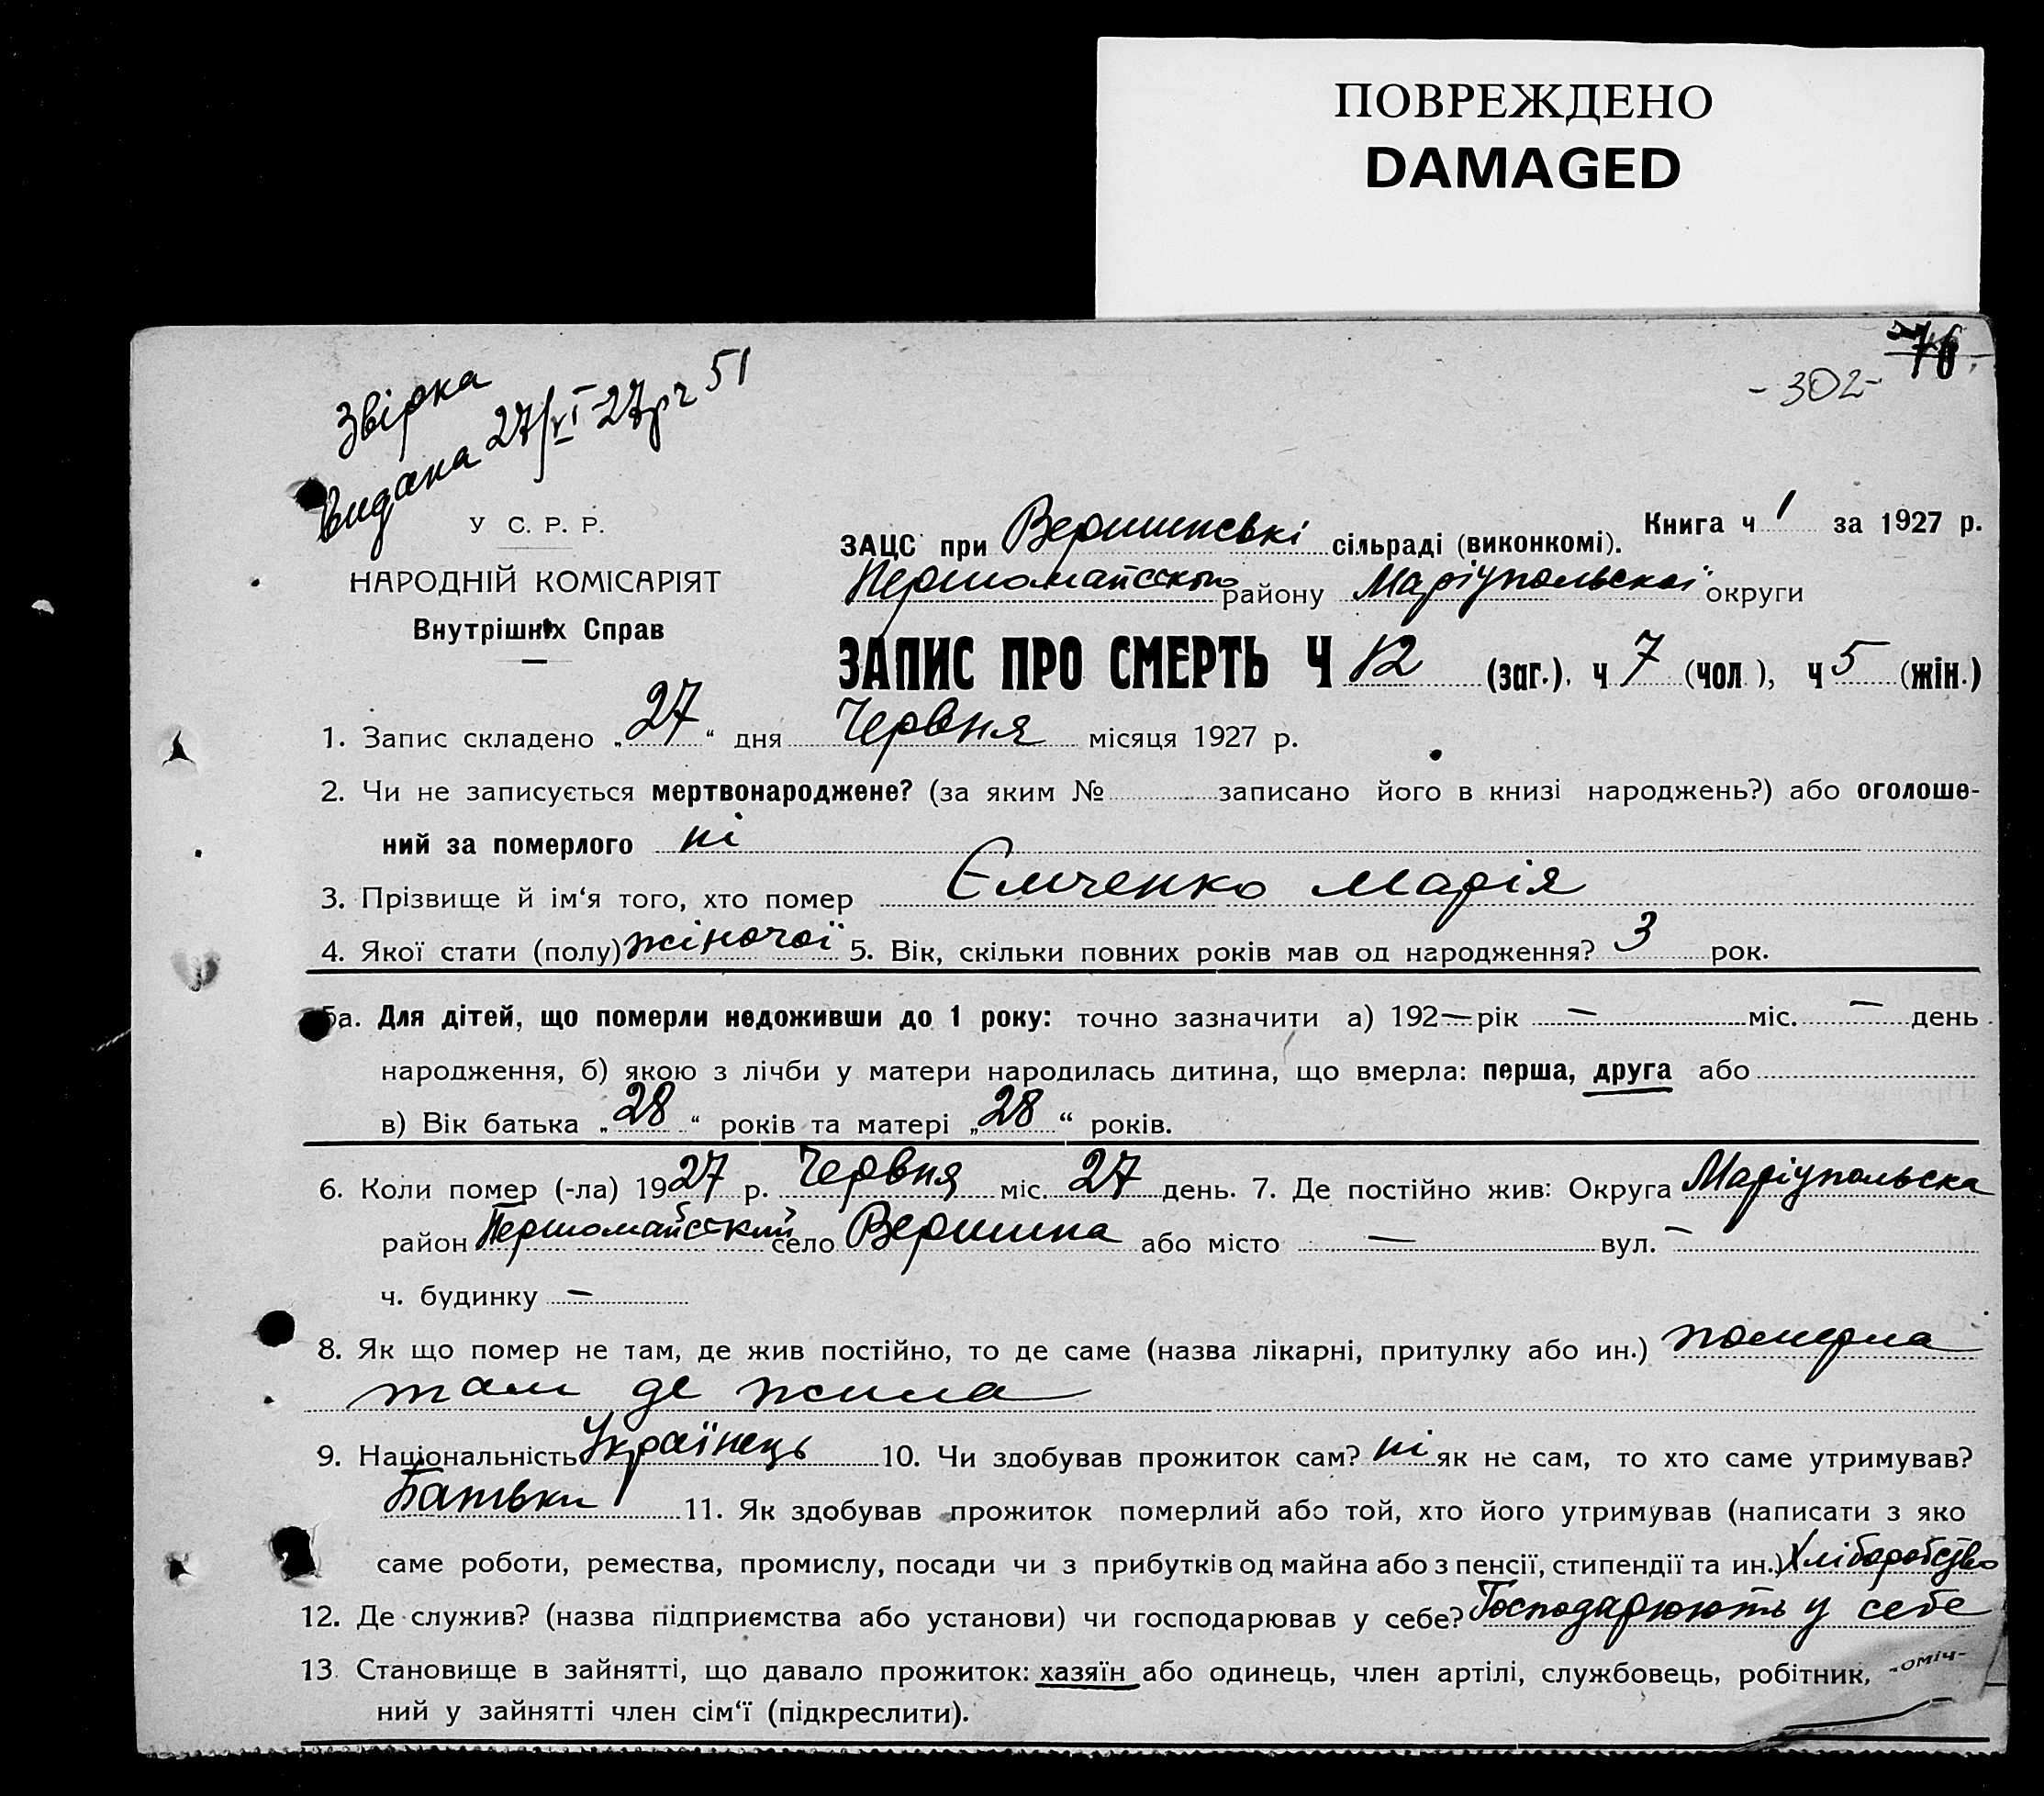 ПОВРЕЖДЕНО
DAMAGED
76
-302-
Звірка
видана 27/VI-27р ч 51
У С. Р. Р.
НАРОДНІЙ КОМІСАРІЯТ
Внутрішніх Справ
Книга ч 1 за 1927 р.
ЗАЦС при Вершинські сільраді (виконкомі).
Першомайського району Маріупольської округи
ЗАПИС ПРО СМЕРТЬ Ч 12 (заг.), ч 7 (чол.), ч 5 (жін.)
1. Запис складено „27“ дня Червня місяця 1927 р.
2. Чи не записується мертвонароджене? (за яким № записано його в книзі народжень?) або оголоше-
ний за померлого ні
3. Прізвище й ім‘я того, хто помер Ємченко Марія
4. Якої стати (полу) жіночої 5. Вік, скільки повних років мав од народження? 3 рок.
5а. Для дітей, що померли недоживши до 1 року: точно зазначити а) 192— рік — міс. — день
народження, б) якою з лічби у матери народилась дитина, що вмерла: перша, друга або
в) Вік батька „28“ років та матері „28“ років.
6. Коли помер (-ла) 1927 р. Червня міс. 27 день. 7. Де постійно жив: Округа Маріупольска
район Першомайсський село Вершина або місто — вул. —
ч. будинку —
8. Як що помер не там, де жив постійно, то де саме (назва лікарні, притулку або ин.) померла
там де жила
9. Національність Українець 10. Чи здобував прожиток сам? ні як не сам, то хто саме утримував?
Батьки 11. Як здобував прожиток померлий або той, хто його утримував (написати з яко
саме роботи, ремества, промислу, посади чи з прибутків од майна або з пенсії, стипендії та ин.) Хліборобство
12. Де служив? (назва підприємства або установи) чи господарював у себе? Господарюють у себе
13. Становище в зайнятті, що давало прожиток: хазяїн або одинець, член артілі, службовець, робітник, -оміч-
ний у зайнятті член сім‘ї (підкреслити).